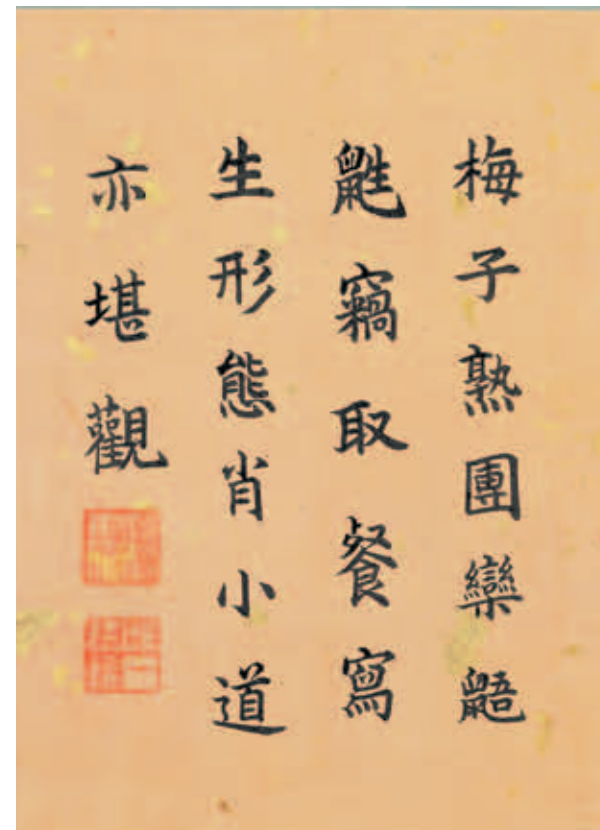 梅子熟團欒鼯
鼪竊取餐寫
生形態肖小道
亦堪觀